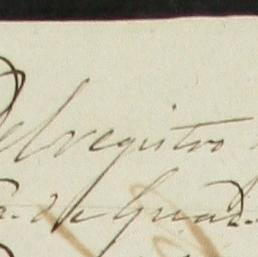 Del registro
de Guad.